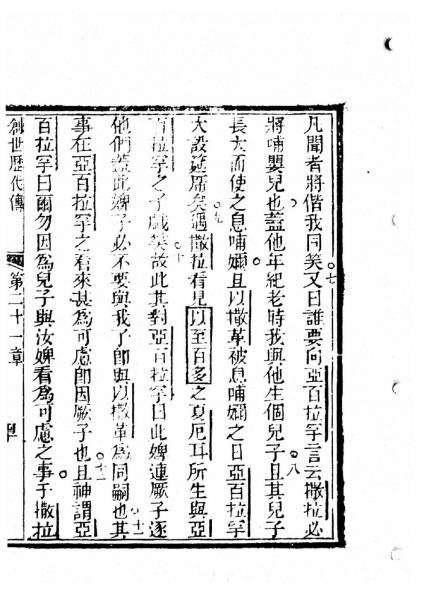 凡聞者將偕我同笑七又曰誰要向亞百拉罕言云撒拉必
將哺嬰兒也蓋他年紀老時我與他生個兒子八且其兒子
長大而使之息哺嬭且以撒革被息哺嬭之日亞百拉罕
大設筵席矣九遇撒拉看見以至百多之夏厄耳所生與亞
百拉罕之子戲笑十故此其對亞百拉罕曰此婢連厥子逐
他們蓋此婢子必不要與我了即與以撒革為同嗣也十一其
事在亞百拉罕之看來甚為可慮即因厥子也十二且神謂亞
百拉罕曰爾勿因為兒子與汝婢看為可慮之事于撒拉
創世歷代傳 第二十一章